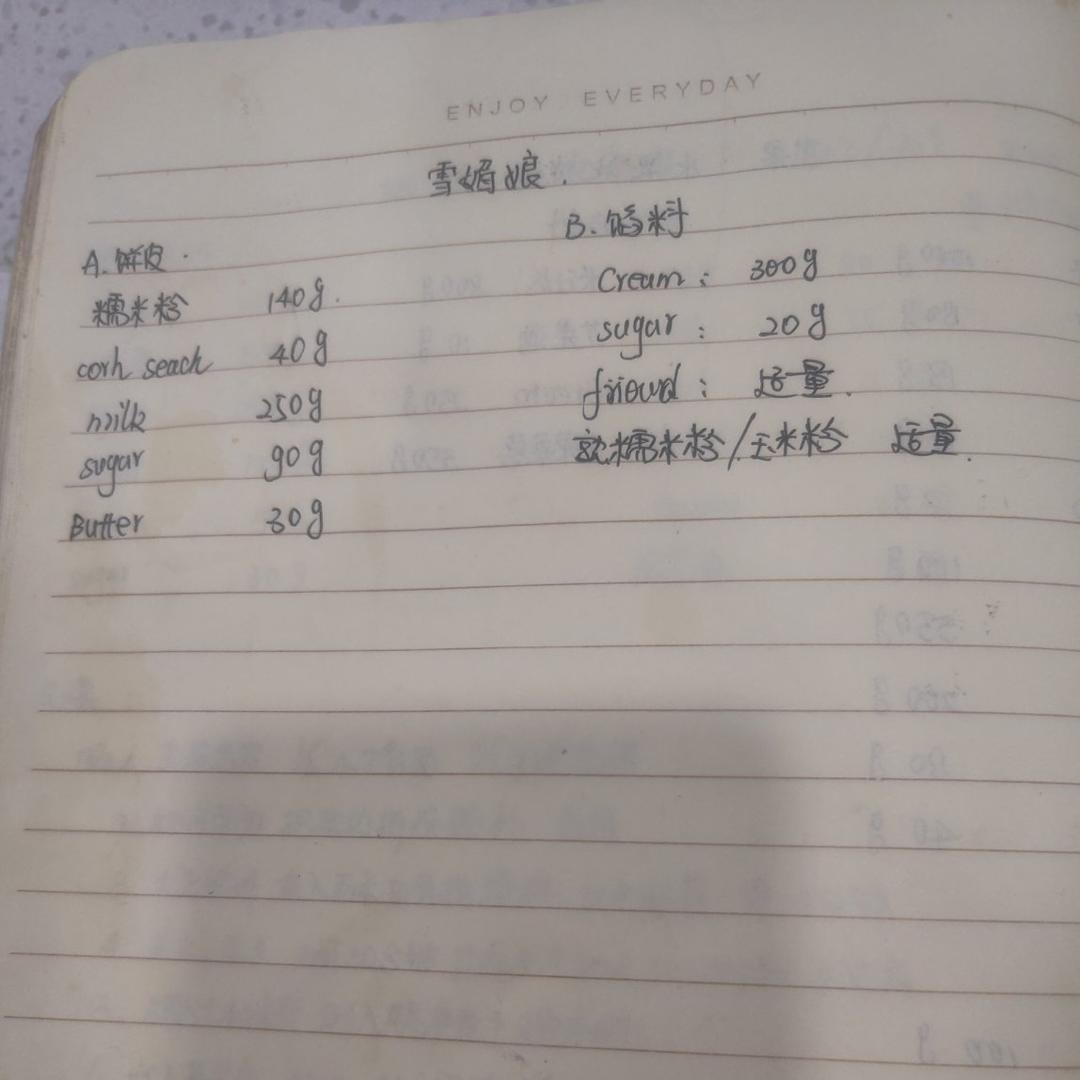 ENJOY EVERYDAY
雪媚娘.
A. 饼皮.
糯米粉 140g.
corh seach 40g
milk 250g
sugar 90g
Butter 30g
B. 馅料
Cream: 300g
sugar: 20g
friowd: 适量.
糯米粉/玉米粉 适量.